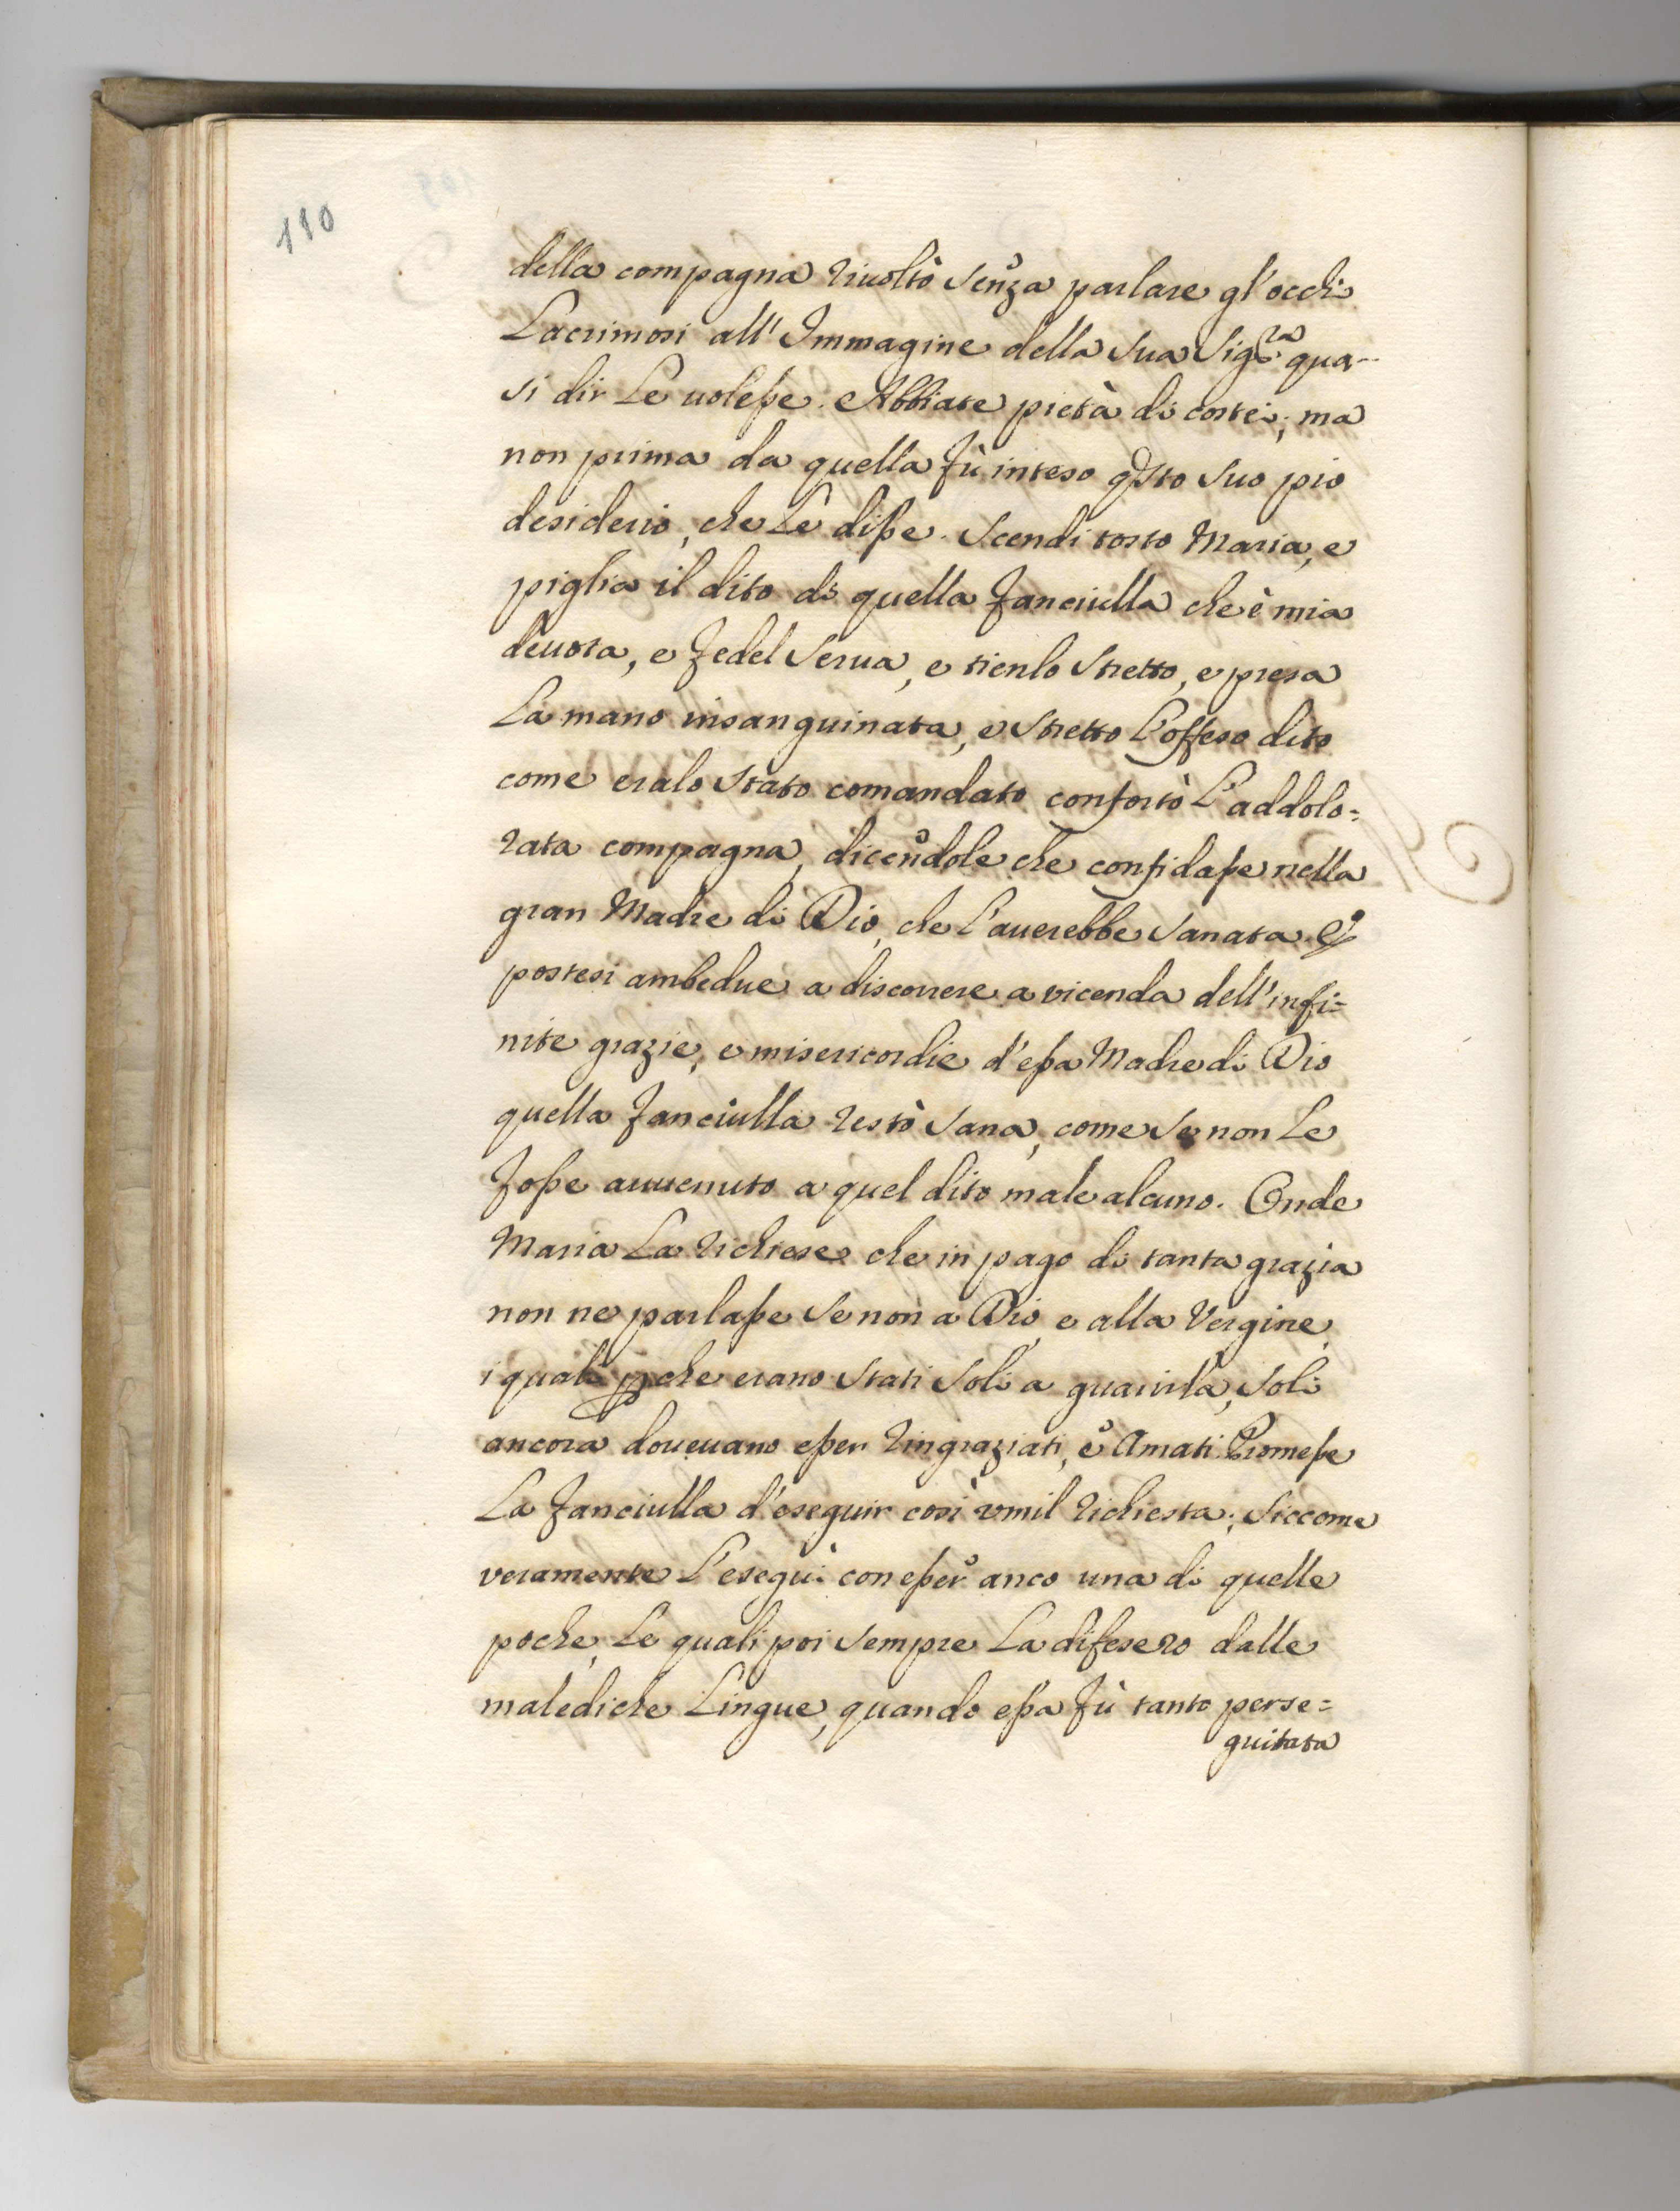 110
della compagna riuoltò senza parlare gl'occhi
Lacrimosi all'Immagine della sua Sig.ra qua-
si dir Le uolesse. Abbiate pietà di costei; ma
non prima da quella fù inteso qsto suo pio
desiderio, che Le disse. Scendi tosto Maria, e
piglia il dito di quella fanciulla che è mia
deuota, e fedel serua, e tienlo stretto, e presa
La mano insanguinata, e stretto L'offeso dito
come eralo stato comandato confortò L'addolo=
rata compagna, dicendole che confidasse nella
gran Madre di Dio, che L'auerebbe sanata. E
postesi ambedue a discorrere a vicenda dell'infi=
nite grazie, e misericordie d'essa Madre di Dio
quella fanciulla restò sana, come se non Le
fosse auuenuto a quel dito male alcuno. Onde
Maria La richiese che in pago di tanta grazia
non ne parlasse se non a Dio, e alla Vergine,
i quali pche erano stati soli a guarirla, soli
ancora doueuano esser ringraziati, e Amati. Promesse
La fanciulla d'eseguir così vmil richiesta; siccome
veramente L'eseguì con esser anco una di quelle
poche, Le quali poi sempre La difesero dalle
malediche Lingue, quando essa fù tanto perse=
guitata